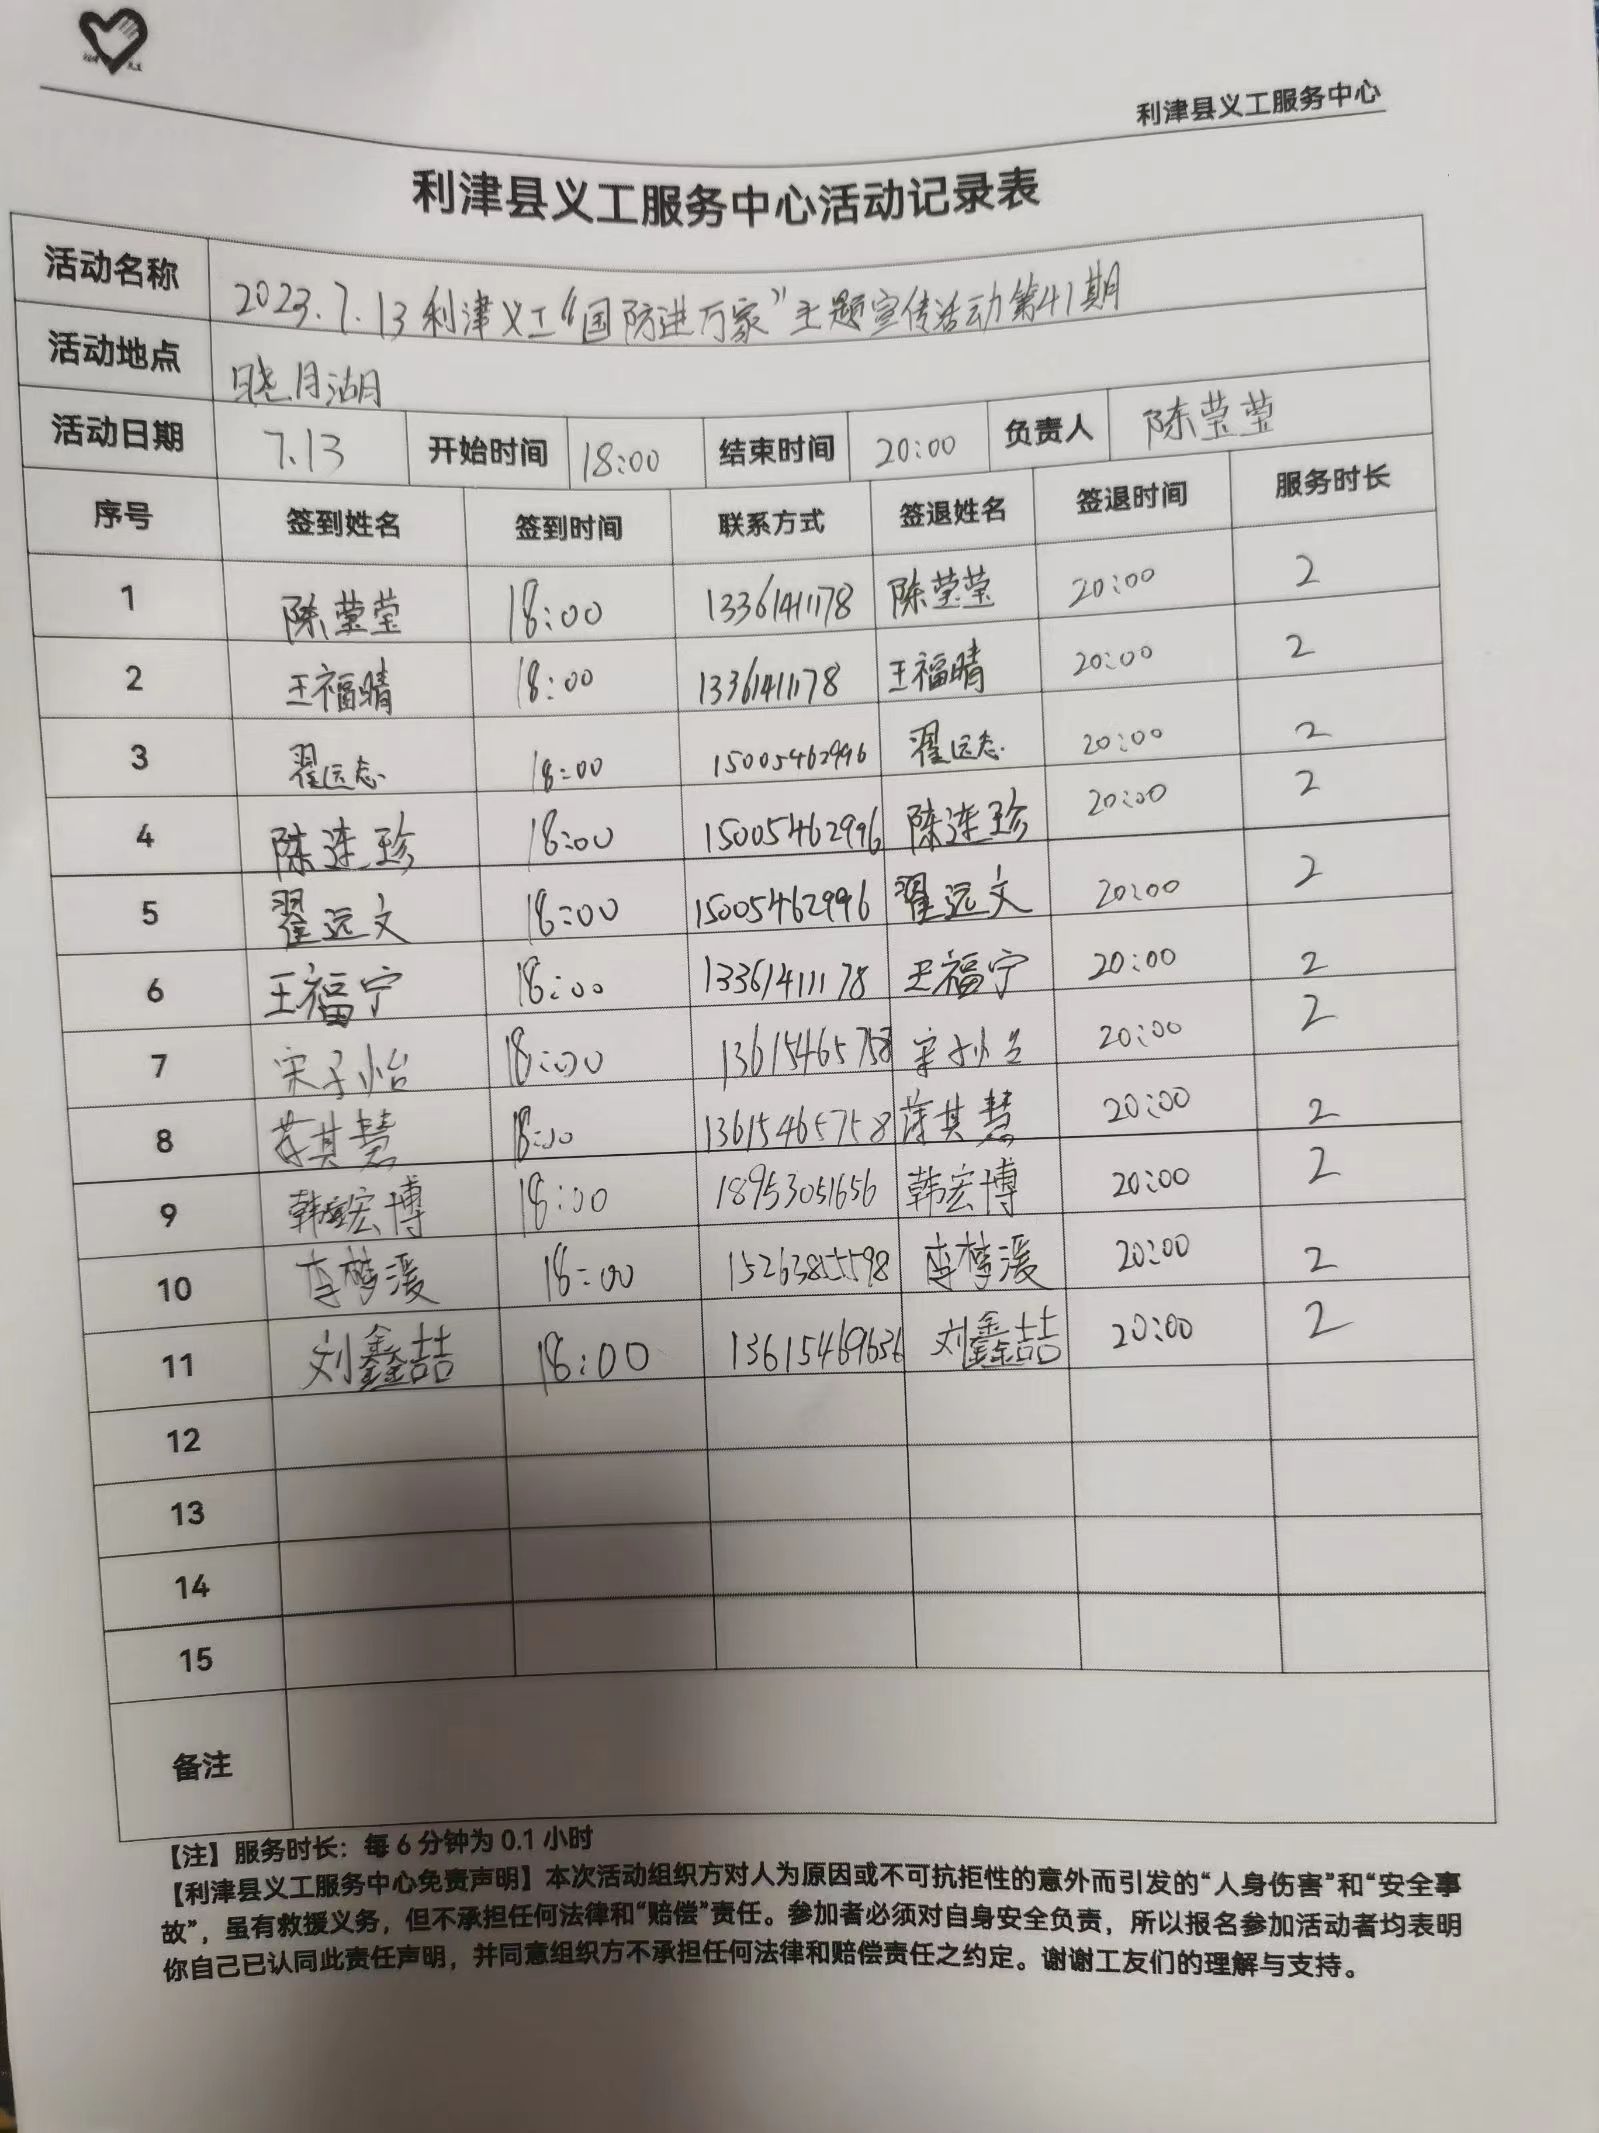 利津县义工服务中心
利津县义工服务中心活动记录表
活动名称 2023.7.13利津义工“国防进万家”主题宣传活动第41期
活动地点 晓月湖
活动日期 7.13 开始时间 18:00 结束时间 20:00 负责人 陈莹莹
序号 签到姓名 签到时间 联系方式 签退姓名 签退时间 服务时长
1 陈莹莹 18:00 13361411178 陈莹莹 20:00 2
2 王福晴 18:00 13361411178 王福晴 20:00 2
3 翟远志 18:00 15005462996 翟远志 20:00 2
4 陈连珍 18:00 15005462996 陈连珍 20:00 2
5 翟远文 18:00 15005462996 翟远文 20:00 2
6 王福宁 18:00 13361411178 王福宁 20:00 2
7 宋子怡 18:00 13615465758 宋子怡 20:00 2
8 其慧 18:00 13615465758 其慧 20:00 2
9 韩宏博 18:00 18953051656 韩宏博 20:00 2
10 李梦湲 18:00 15263855598 李梦湲 20:00 2
11 刘鑫喆 18:00 13615469636 刘鑫喆 20:00 2
12
13
14
15
备注
【注】服务时长：每 6 分钟为 0.1 小时
【利津县义工服务中心免责声明】本次活动组织方对人为原因或不可抗拒性的意外而引发的“人身伤害”和“安全事
故”，虽有救援义务，但不承担任何法律和“赔偿”责任。参加者必须对自身安全负责，所以报名参加活动者均表明
你自己已认同此责任声明，并同意组织方不承担任何法律和赔偿责任之约定。谢谢工友们的理解与支持。